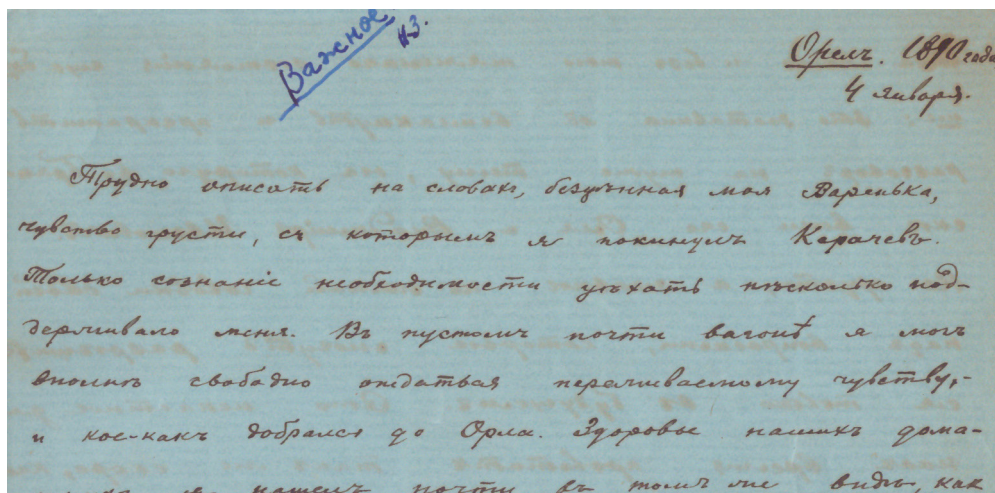 Важное
Орелъ. 1890 года
4 января.
Трудно описать на словахъ, безцѣнная моя Варенька,
чувство грусти, съ которымъ я покинулъ Карачевъ.
Только сознаніе необходимости уѣхать нѣсколько под-
держивало меня. Въ пустомъ почти вагонѣ я могъ
вполнѣ свободно отдаться переживаемому чувству,
и кое-какъ добрался до Орла. Здоровье нашихъ дома-
я нашелъ почти въ томъ же видѣ, какъ